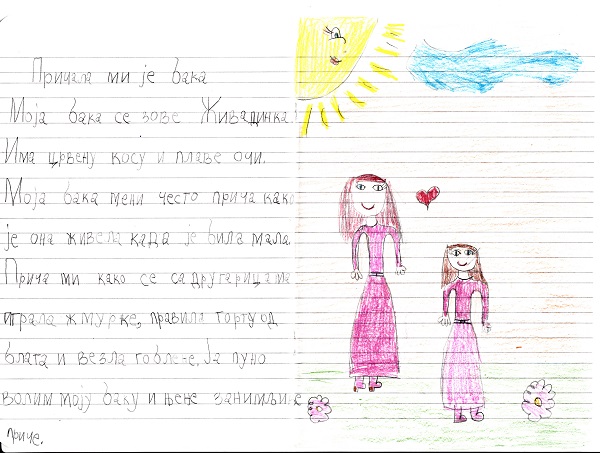 Причала ми је бака
Моја бака се зове Живадинка.
Има црвену косу и плаве очи.
Моја бака мени често прича како
је она живела када је била мала.
Прича ми како се са другарицама
играла жмурке, правила торту од
блата и везла гоблене. Ја пуно
волим моју баку и њене занимљиве
приче.